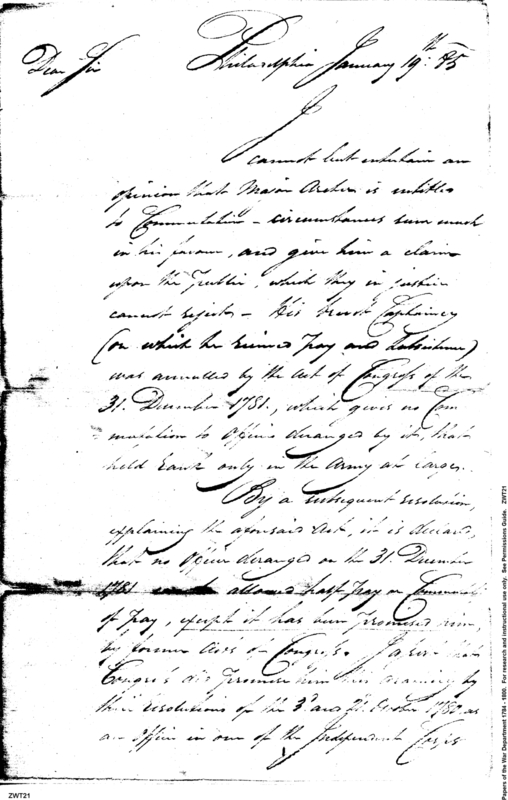 Philadelphia January 19th: 85
Dear Sir
I
cannot but entertain an
opinion that Major Archer is entitled
to Commutation – circumstances seem much
in his favour, and give him a claim
upon the Public, which they in justice
cannot reject – His brevet Captaincy
(on which he received Pay and Subsistence)
was annulled by the Act of Congress of the
31. December 1781., which gives no Com
mutation to Officers deranged by it, that
held Rank only in the Army at large.
By a subsequent resolution,
explaining the aforesaid Act, it is declared,
that no Officer deranged on the 31. December
1781 allowed half Pay or Commutation
of Pay, except it has been Promised him,
by former Acts of Congress. that
Congress did Promise him by
their resolutions of the 3d and 21. October 1780 as
an Officer in one of the Independent Corps
ZWT21
Papers of the War Department 1784 - 1800. For research and instructional use only. See Permissions Guide. ZWT21